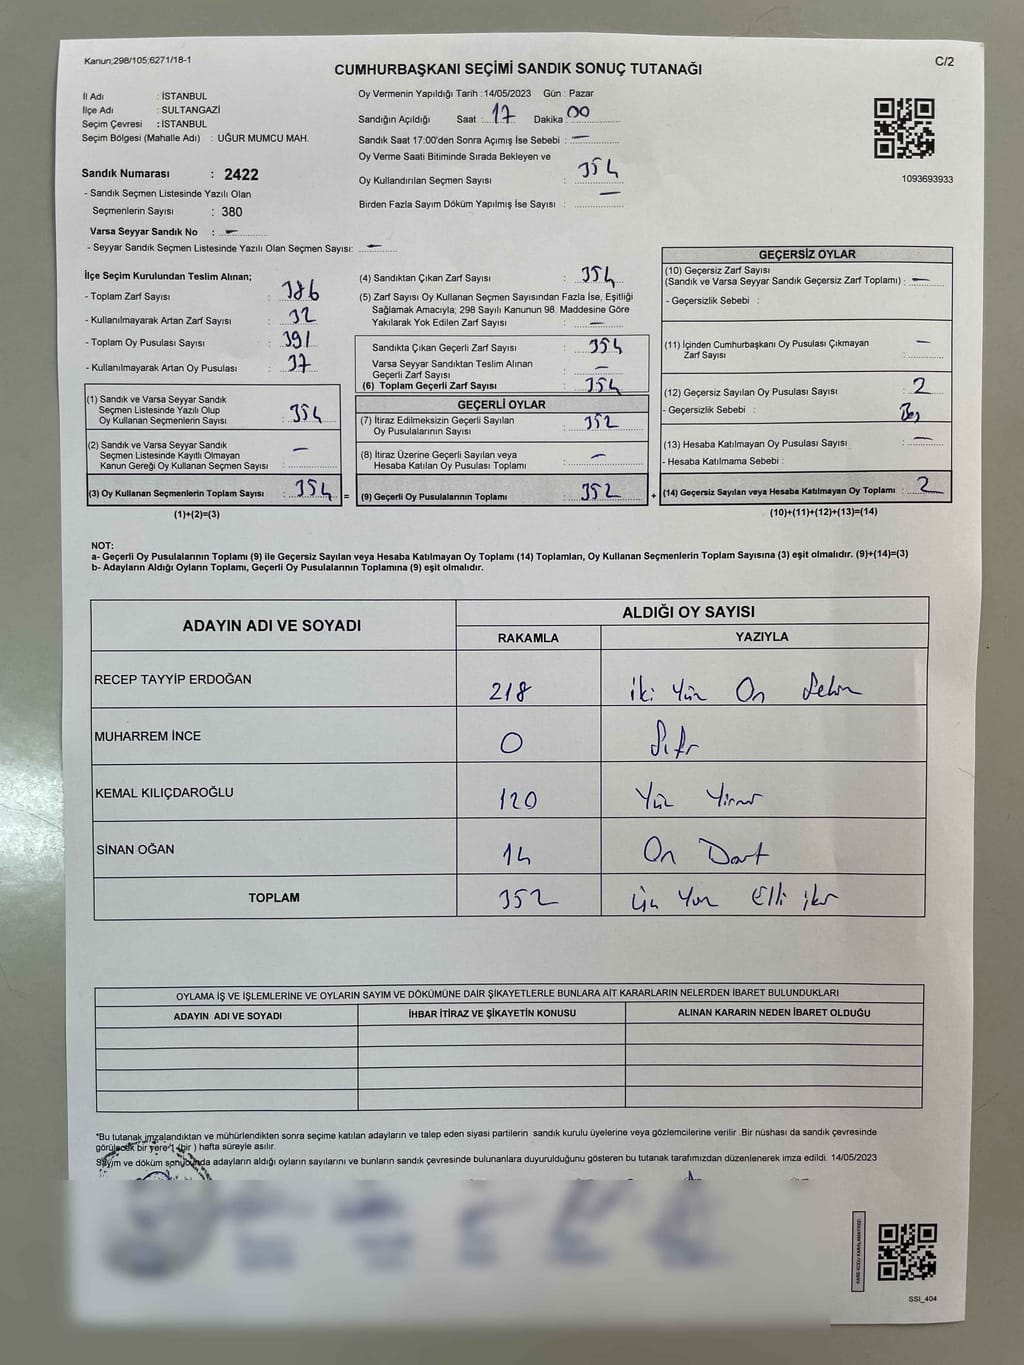 Kanun;298/105;6271/18-1
C/2
CUMHURBAŞKANI SEÇİMİ SANDIK SONUÇ TUTANAĞI
İl Adı : İSTANBUL
İlçe Adı : SULTANGAZİ
Seçim Çevresi : İSTANBUL
Seçim Bölgesi (Mahalle Adı) : UĞUR MUMCU MAH.
Sandık Numarası : 2422
- Sandık Seçmen Listesinde Yazılı Olan
Seçmenlerin Sayısı : 380
Varsa Seyyar Sandık No : —
- Seyyar Sandık Seçmen Listesinde Yazılı Olan Seçmen Sayısı: —
Oy Vermenin Yapıldığı Tarih :14/05/2023 Gün : Pazar
Sandığın Açıldığı Saat : 17 Dakika : 00
Sandık Saat 17:00'den Sonra Açımış İse Sebebi : —
Oy Verme Saati Bitiminde Sırada Bekleyen ve
Oy Kullandırılan Seçmen Sayısı : 354
Birden Fazla Sayım Döküm Yapılmış İse Sayısı : —
1093693933
İlçe Seçim Kurulundan Teslim Alınan;
- Toplam Zarf Sayısı : 386
- Kullanılmayarak Artan Zarf Sayısı : 32
- Toplam Oy Pusulası Sayısı : 391
- Kullanılmayarak Artan Oy Pusulası : 37
(1) Sandık ve Varsa Seyyar Sandık
Seçmen Listesinde Yazılı Olup
Oy Kullanan Seçmenlerin Sayısı : 354
(2) Sandık ve Varsa Seyyar Sandık
Seçmen Listesinde Kayıtlı Olmayan
Kanun Gereği Oy Kullanan Seçmen Sayısı : —
(3) Oy Kullanan Seçmenlerin Toplam Sayısı : 354 =
(1)+(2)=(3)
(4) Sandıktan Çıkan Zarf Sayısı : 354
(5) Zarf Sayısı Oy Kullanan Seçmen Sayısından Fazla İse, Eşitliği
Sağlamak Amacıyla; 298 Sayılı Kanunun 98. Maddesine Göre
Yakılarak Yok Edilen Zarf Sayısı : —
Sandıkta Çıkan Geçerli Zarf Sayısı : 354
Varsa Seyyar Sandıktan Teslim Alınan
Geçerli Zarf Sayısı : —
(6) Toplam Geçerli Zarf Sayısı : 354
GEÇERLİ OYLAR
(7) İtiraz Edilmeksizin Geçerli Sayılan
Oy Pusulalarının Sayısı : 352
(8) İtiraz Üzerine Geçerli Sayılan veya
Hesaba Katılan Oy Pusulası Toplamı : —
(9) Geçerli Oy Pusulalarının Toplamı : 352 +
GEÇERSİZ OYLAR
(10) Geçersiz Zarf Sayısı
(Sandık ve Varsa Seyyar Sandık Geçersiz Zarf Toplamı) : —
- Geçersizlik Sebebi :
(11) İçinden Cumhurbaşkanı Oy Pusulası Çıkmayan
Zarf Sayısı : —
(12) Geçersiz Sayılan Oy Pusulası Sayısı : 2
- Geçersizlik Sebebi : Boş
(13) Hesaba Katılmayan Oy Pusulası Sayısı : —
- Hesaba Katılmama Sebebi :
(14) Geçersiz Sayılan veya Hesaba Katılmayan Oy Toplamı : 2
(10)+(11)+(12)+(13)=(14)
NOT:
a- Geçerli Oy Pusulalarının Toplamı (9) ile Geçersiz Sayılan veya Hesaba Katılmayan Oy Toplamı (14) Toplamları, Oy Kullanan Seçmenlerin Toplam Sayısına (3) eşit olmalıdır. (9)+(14)=(3)
b- Adayların Aldığı Oyların Toplamı, Geçerli Oy Pusulalarının Toplamına (9) eşit olmalıdır.
ADAYIN ADI VE SOYADI ALDIĞI OY SAYISI
RAKAMLA YAZIYLA
RECEP TAYYİP ERDOĞAN 218 iki Yüz On Sekiz
MUHARREM İNCE 0 Sıfır
KEMAL KILIÇDAROĞLU 120 Yüz Yirmi
SİNAN OĞAN 14 On Dört
TOPLAM 352 üç Yüz Elli iki
OYLAMA İŞ VE İŞLEMLERİNE VE OYLARIN SAYIM VE DÖKÜMÜNE DAİR ŞİKAYETLERLE BUNLARA AİT KARARLARIN NELERDEN İBARET BULUNDUKLARI
ADAYIN ADI VE SOYADI İHBAR İTİRAZ VE ŞİKAYETİN KONUSU ALINAN KARARIN NEDEN İBARET OLDUĞU
*Bu tutanak imzalandıktan ve mühürlendikten sonra seçime katılan adayların ve talep eden siyasi partilerin sandık kurulu üyelerine veya gözlemcilerine verilir .Bir nüshası da sandık çevresinde
görülecek bir yere 1 (bir ) hafta süreyle asılır.
Sayım ve döküm sonucunda adayların aldığı oyların sayılarını ve bunların sandık çevresinde bulunanlara duyurulduğunu gösteren bu tutanak tarafımızdan düzenlenerek imza edildi. 14/05/2023
SSI_404